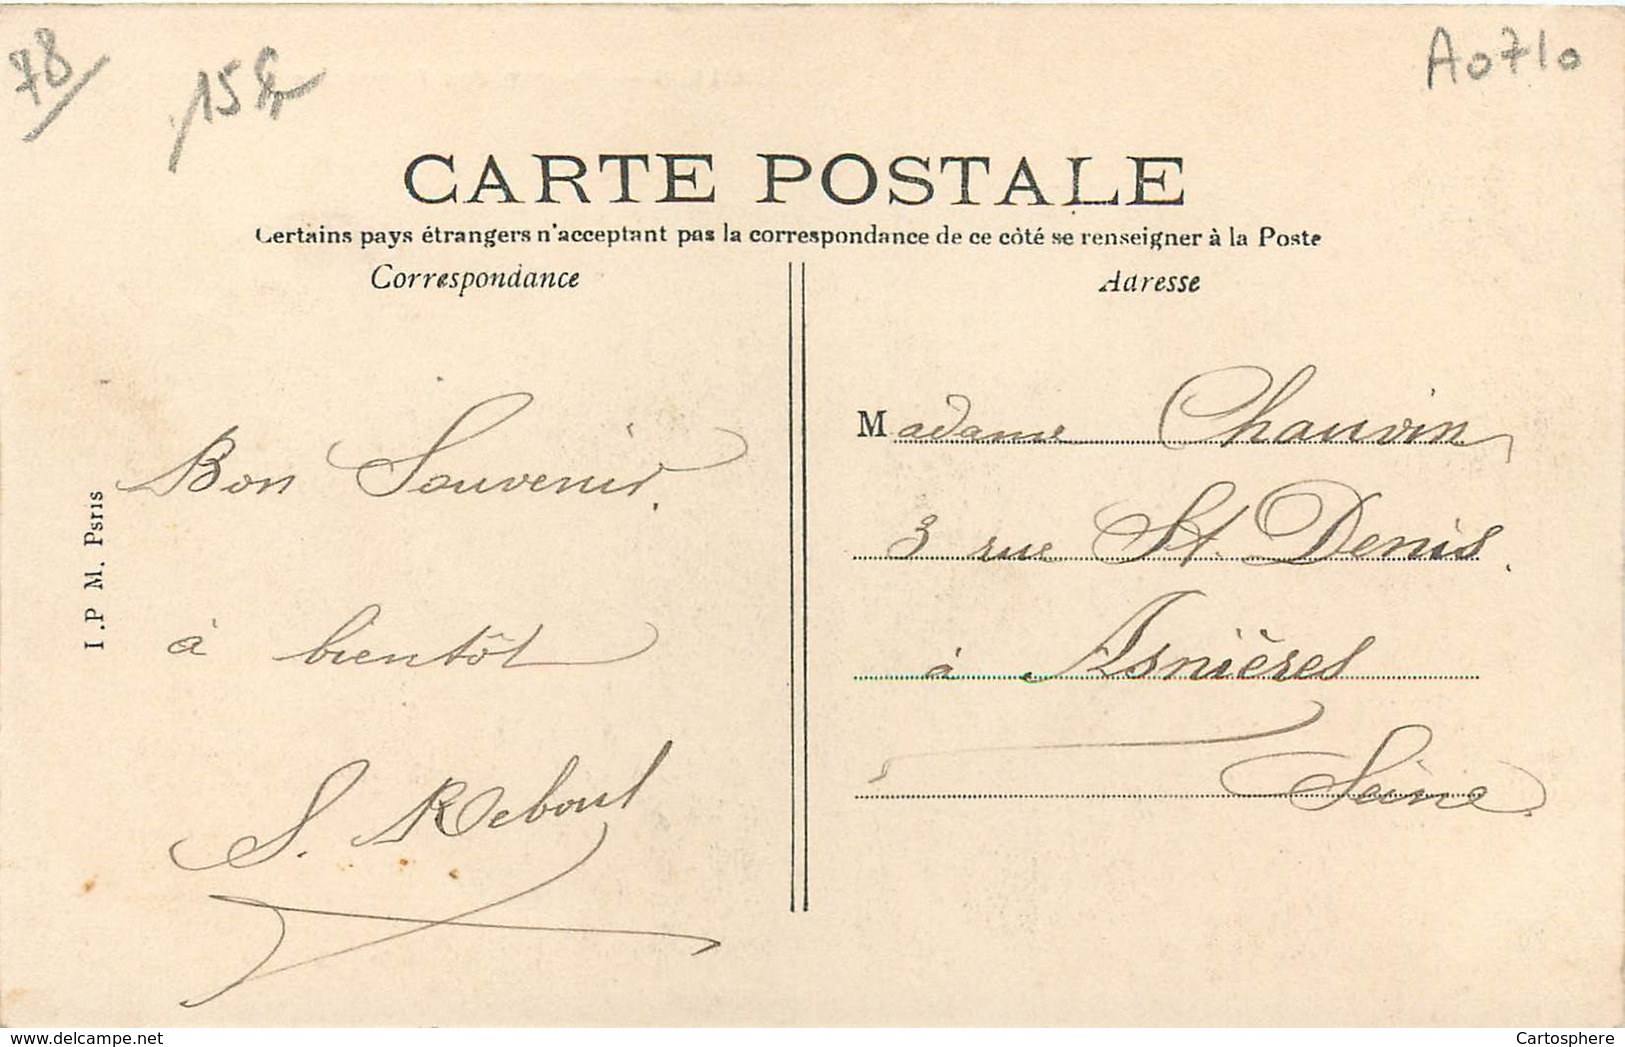 78
15
A0710
CARTE POSTALE
Certains pays étrangers n'acceptant pas la correspondance de ce côté se renseigner à la Poste
Correspondance
Adresse
Bon Souvenir.
à bientôt
S. Reboul
I.P M. Psris
Madame Chauvin
3 rue St. Denis.
à Asnières
Seine.
www.delcampe.net
Cartosphere